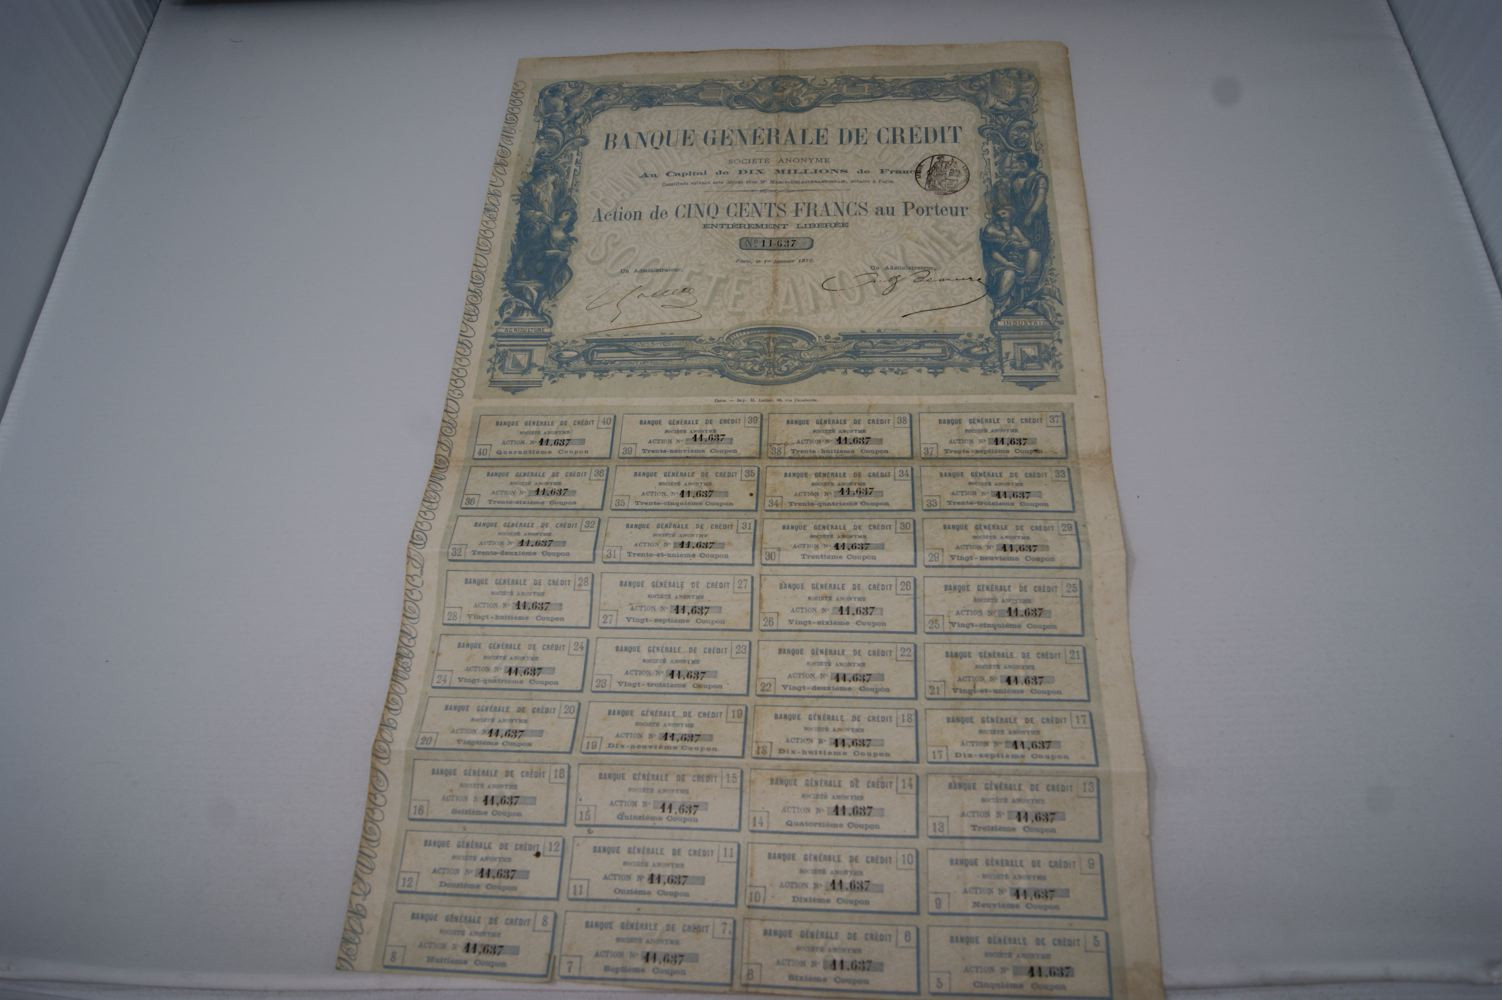 BANQUE GÉNÉRALE DE CRÉDIT
SOCIÉTÉ ANONYME
Au Capital de DIX MILLIONS de Francs
Action de CINQ CENTS FRANCS au Porteur
ENTIÈREMENT LIBÉRÉE
No 11,637
Un Administrateur, Un Administrateur,
AGRICULTURE INDUSTRIE
BANQUE GÉNÉRALE DE CRÉDIT 40 BANQUE GÉNÉRALE DE CRÉDIT 39 BANQUE GÉNÉRALE DE CRÉDIT 38 BANQUE GÉNÉRALE DE CRÉDIT 37
SOCIÉTÉ ANONYME SOCIÉTÉ ANONYME SOCIÉTÉ ANONYME SOCIÉTÉ ANONYME
ACTION No 11,637 ACTION No 11,637 ACTION No 11,637 ACTION No 11,637
40 Quarantième Coupon 39 Trente-neuvième Coupon 38 Trente-huitième Coupon 37 Trente-septième Coupon
BANQUE GÉNÉRALE DE CRÉDIT 36 BANQUE GÉNÉRALE DE CRÉDIT 35 BANQUE GÉNÉRALE DE CRÉDIT 34 BANQUE GÉNÉRALE DE CRÉDIT 33
SOCIÉTÉ ANONYME SOCIÉTÉ ANONYME SOCIÉTÉ ANONYME SOCIÉTÉ ANONYME
ACTION No 11,637 ACTION No 11,637 ACTION No 11,637 ACTION No 11,637
36 Trente-sixième Coupon 35 Trente-cinquième Coupon 34 Trente-quatrième Coupon 33 Trente-troisième Coupon
BANQUE GÉNÉRALE DE CRÉDIT 32 BANQUE GÉNÉRALE DE CRÉDIT 31 BANQUE GÉNÉRALE DE CRÉDIT 30 BANQUE GÉNÉRALE DE CRÉDIT 29
SOCIÉTÉ ANONYME SOCIÉTÉ ANONYME SOCIÉTÉ ANONYME SOCIÉTÉ ANONYME
ACTION No 11,637 ACTION No 11,637 ACTION No 11,637 ACTION No 11,637
32 Trente-deuxième Coupon 31 Trente-et-unième Coupon 30 Trentième Coupon 29 Vingt-neuvième Coupon
BANQUE GÉNÉRALE DE CRÉDIT 28 BANQUE GÉNÉRALE DE CRÉDIT 27 BANQUE GÉNÉRALE DE CRÉDIT 26 BANQUE GÉNÉRALE DE CRÉDIT 25
SOCIÉTÉ ANONYME SOCIÉTÉ ANONYME SOCIÉTÉ ANONYME SOCIÉTÉ ANONYME
ACTION No 11,637 ACTION No 11,637 ACTION No 11,637 ACTION No 11,637
28 Vingt-huitième Coupon 27 Vingt-septième Coupon 26 Vingt-sixième Coupon 25 Vingt-cinquième Coupon
BANQUE GÉNÉRALE DE CRÉDIT 24 BANQUE GÉNÉRALE DE CRÉDIT 23 BANQUE GÉNÉRALE DE CRÉDIT 22 BANQUE GÉNÉRALE DE CRÉDIT 21
SOCIÉTÉ ANONYME SOCIÉTÉ ANONYME SOCIÉTÉ ANONYME SOCIÉTÉ ANONYME
ACTION No 11,637 ACTION No 11,637 ACTION No 11,637 ACTION No 11,637
24 Vingt-quatrième Coupon 23 Vingt-troisième Coupon 22 Vingt-deuxième Coupon 21 Vingt-et-unième Coupon
BANQUE GÉNÉRALE DE CRÉDIT 20 BANQUE GÉNÉRALE DE CRÉDIT 19 BANQUE GÉNÉRALE DE CRÉDIT 18 BANQUE GÉNÉRALE DE CRÉDIT 17
SOCIÉTÉ ANONYME SOCIÉTÉ ANONYME SOCIÉTÉ ANONYME SOCIÉTÉ ANONYME
ACTION No 11,637 ACTION No 11,637 ACTION No 11,637 ACTION No 11,637
20 Vingtième Coupon 19 Dix-neuvième Coupon 18 Dix-huitième Coupon 17 Dix-septième Coupon
BANQUE GÉNÉRALE DE CRÉDIT 16 BANQUE GÉNÉRALE DE CRÉDIT 15 BANQUE GÉNÉRALE DE CRÉDIT 14 BANQUE GÉNÉRALE DE CRÉDIT 13
SOCIÉTÉ ANONYME SOCIÉTÉ ANONYME SOCIÉTÉ ANONYME SOCIÉTÉ ANONYME
ACTION No 11,637 ACTION No 11,637 ACTION No 11,637 ACTION No 11,637
16 Seizième Coupon 15 Quinzième Coupon 14 Quatorzième Coupon 13 Treizième Coupon
BANQUE GÉNÉRALE DE CRÉDIT 12 BANQUE GÉNÉRALE DE CRÉDIT 11 BANQUE GÉNÉRALE DE CRÉDIT 10 BANQUE GÉNÉRALE DE CRÉDIT 9
SOCIÉTÉ ANONYME SOCIÉTÉ ANONYME SOCIÉTÉ ANONYME SOCIÉTÉ ANONYME
ACTION No 11,637 ACTION No 11,637 ACTION No 11,637 ACTION No 11,637
12 Douzième Coupon 11 Onzième Coupon 10 Dixième Coupon 9 Neuvième Coupon
BANQUE GÉNÉRALE DE CRÉDIT 8 BANQUE GÉNÉRALE DE CRÉDIT 7 BANQUE GÉNÉRALE DE CRÉDIT 6 BANQUE GÉNÉRALE DE CRÉDIT 5
SOCIÉTÉ ANONYME SOCIÉTÉ ANONYME SOCIÉTÉ ANONYME SOCIÉTÉ ANONYME
ACTION No 11,637 ACTION No 11,637 ACTION No 11,637 ACTION No 11,637
8 Huitième Coupon 7 Septième Coupon 6 Sixième Coupon 5 Cinquième Coupon